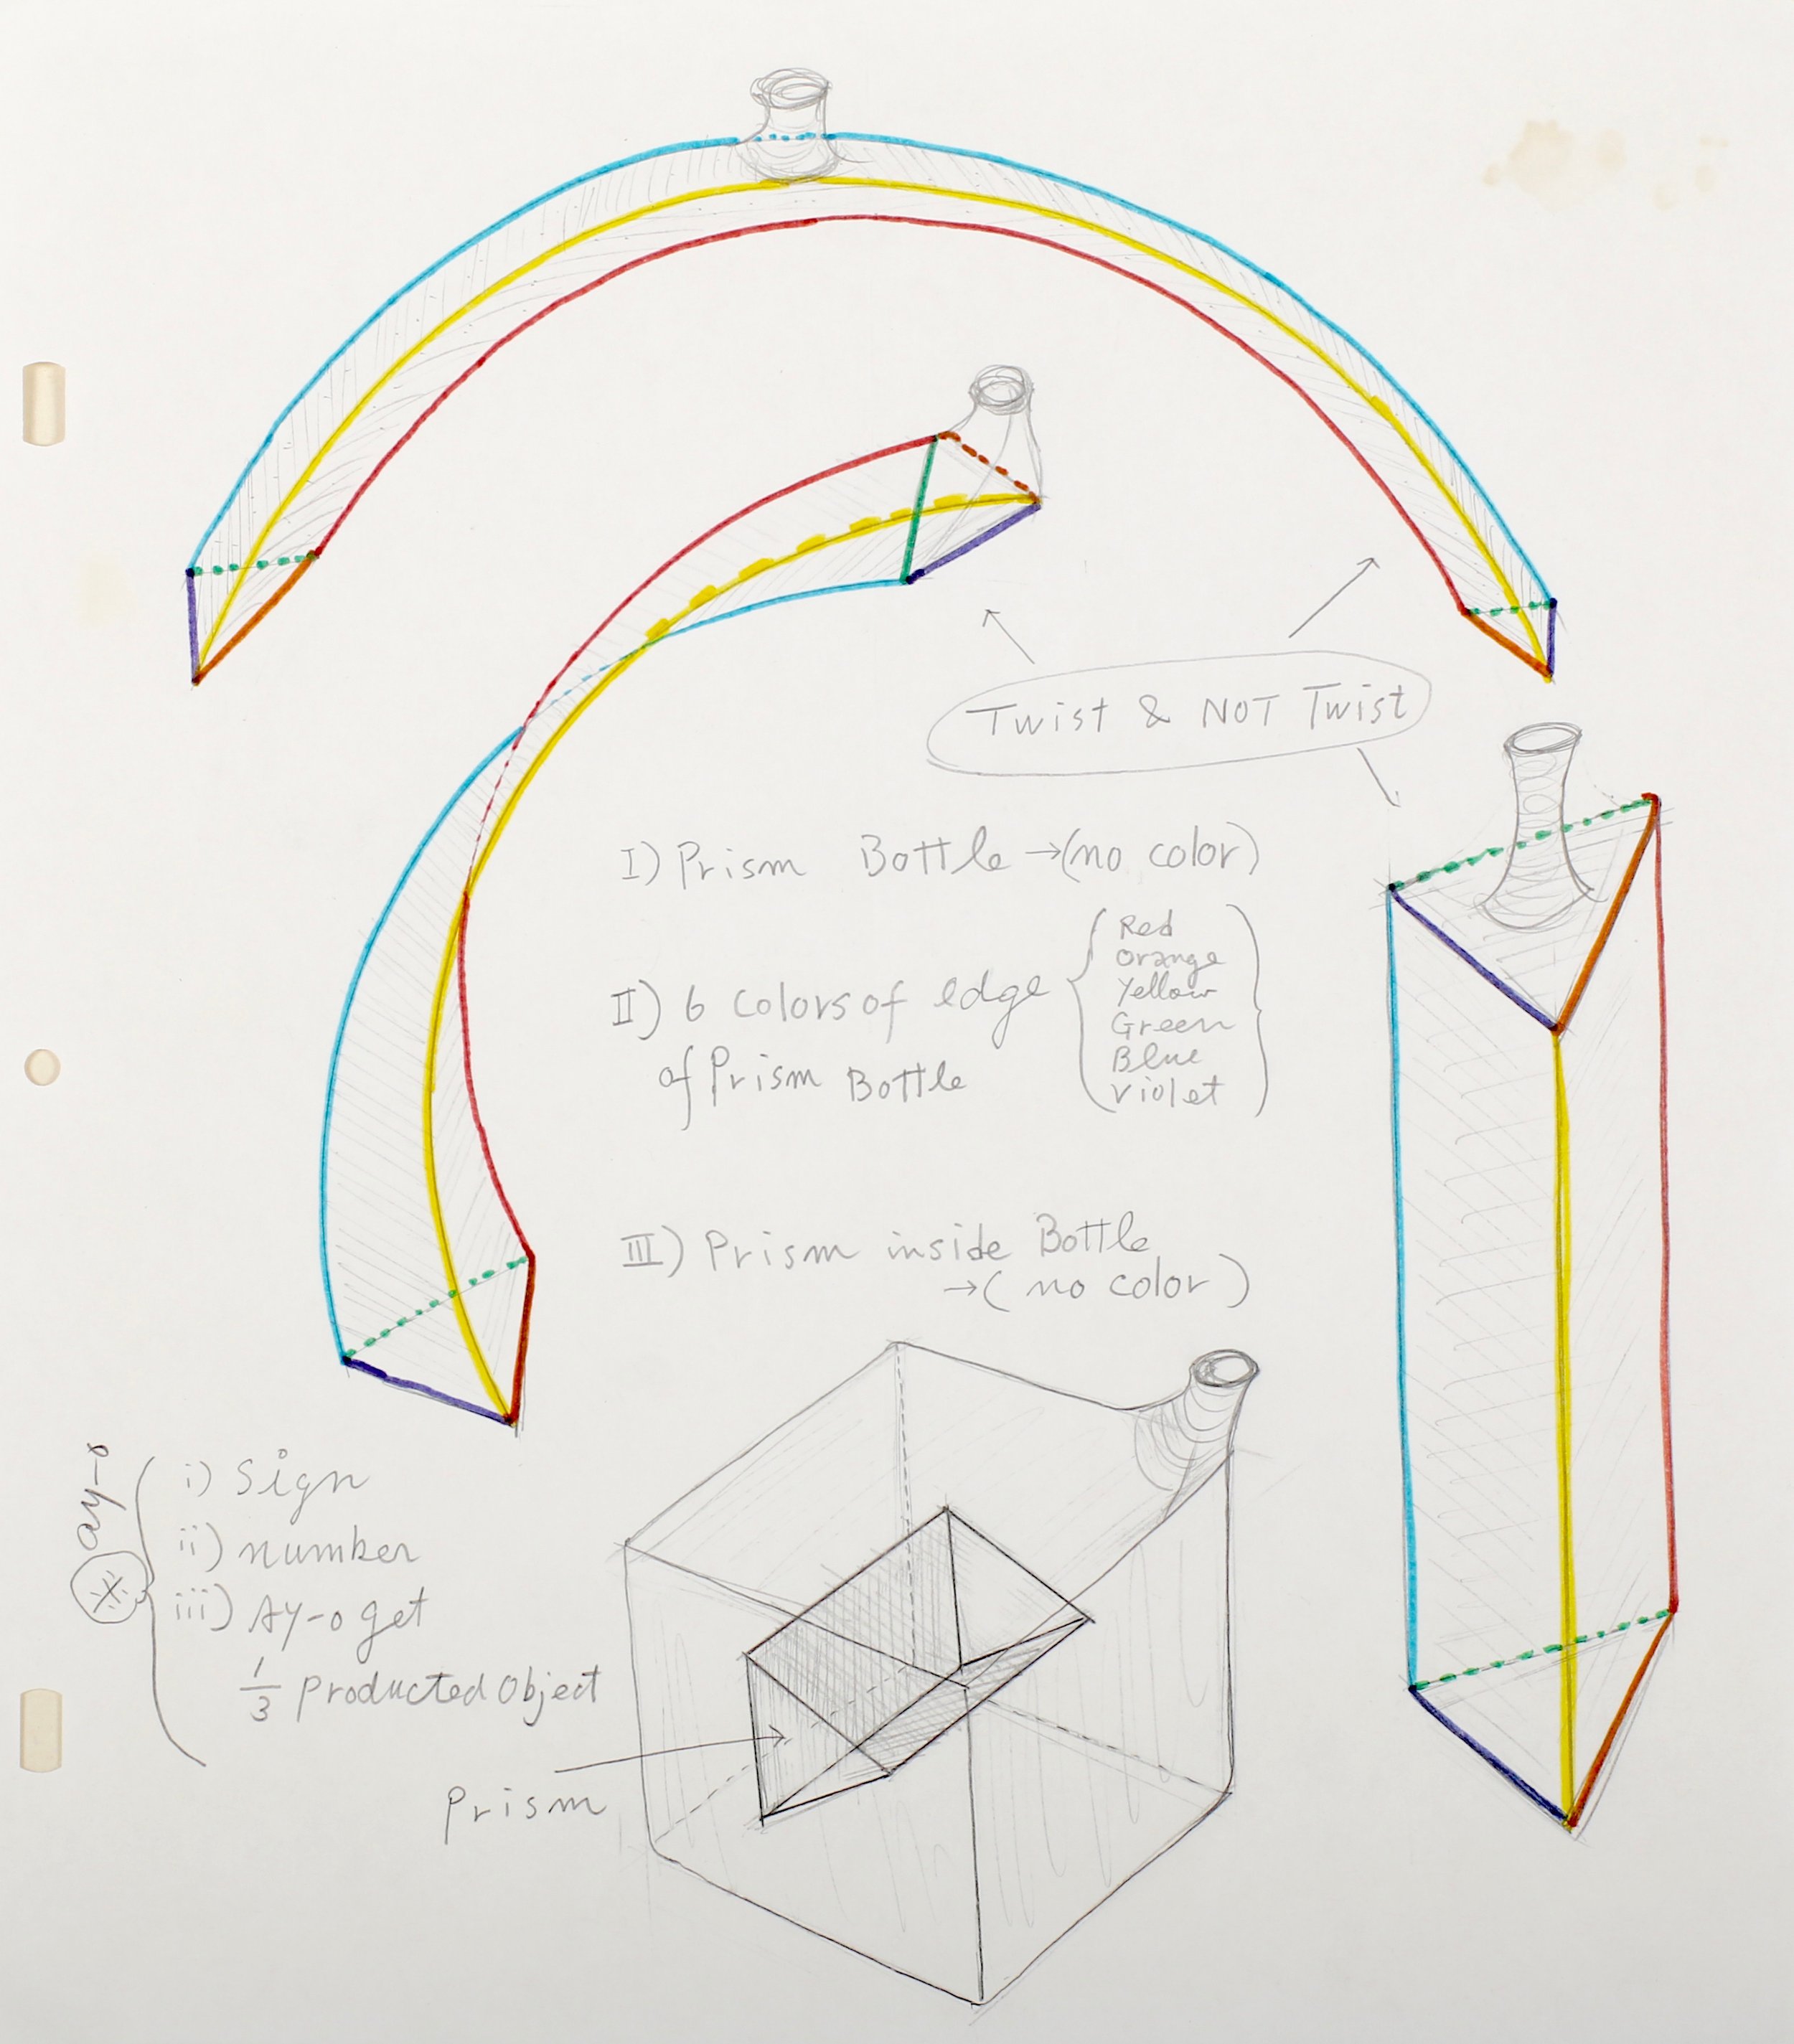 Twist & NOT Twist
I) Prism Bottle →(no color)
II) 6 colors of edge
of Prism Bottle
Red
Orange
Yellow
Green
Blue
violet
III) Prism inside Bottle
→( no color )
ay-o
i) Sign
ii) number
iii) Ay-o get
1/3 producted object
Prism